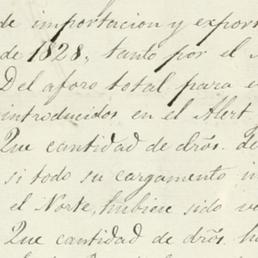 de importacion y expor
de 1828, tanto por el
Del aforo total para
introducidos en el Alert
Que cantidad de dros. de
si todo su cargamento
el Norte, hubiera sido
Que cantidad de dros.